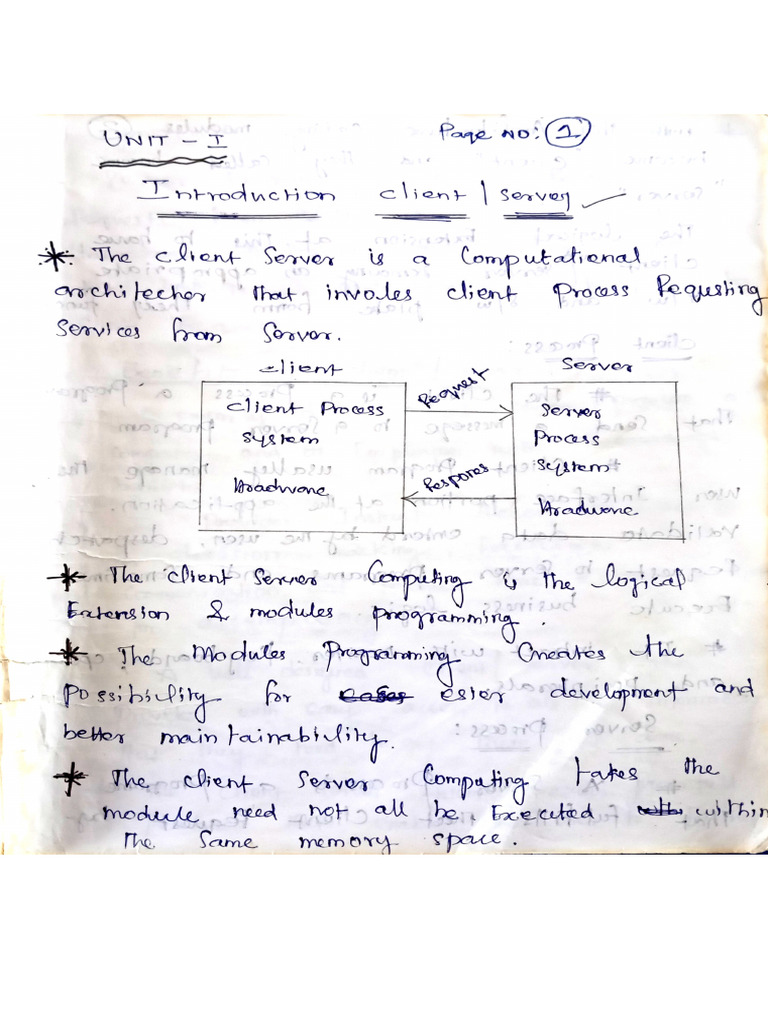 UNIT - I
Page NO: 1
Introduction client / server
The client server is a computational
architecher that involes client process Requsting
services from server.
client
Server
client process
system
Hradwone
Request
Respores
server
Process
system
Hradwone
The client server Computing is the logical
Extension & modules programming.
The Modules Programming Creates the
possibiclity for eases esior development and
better maintainabiclity.
The client server Computing takes the
module need not all be Executed within
The Same memory space.